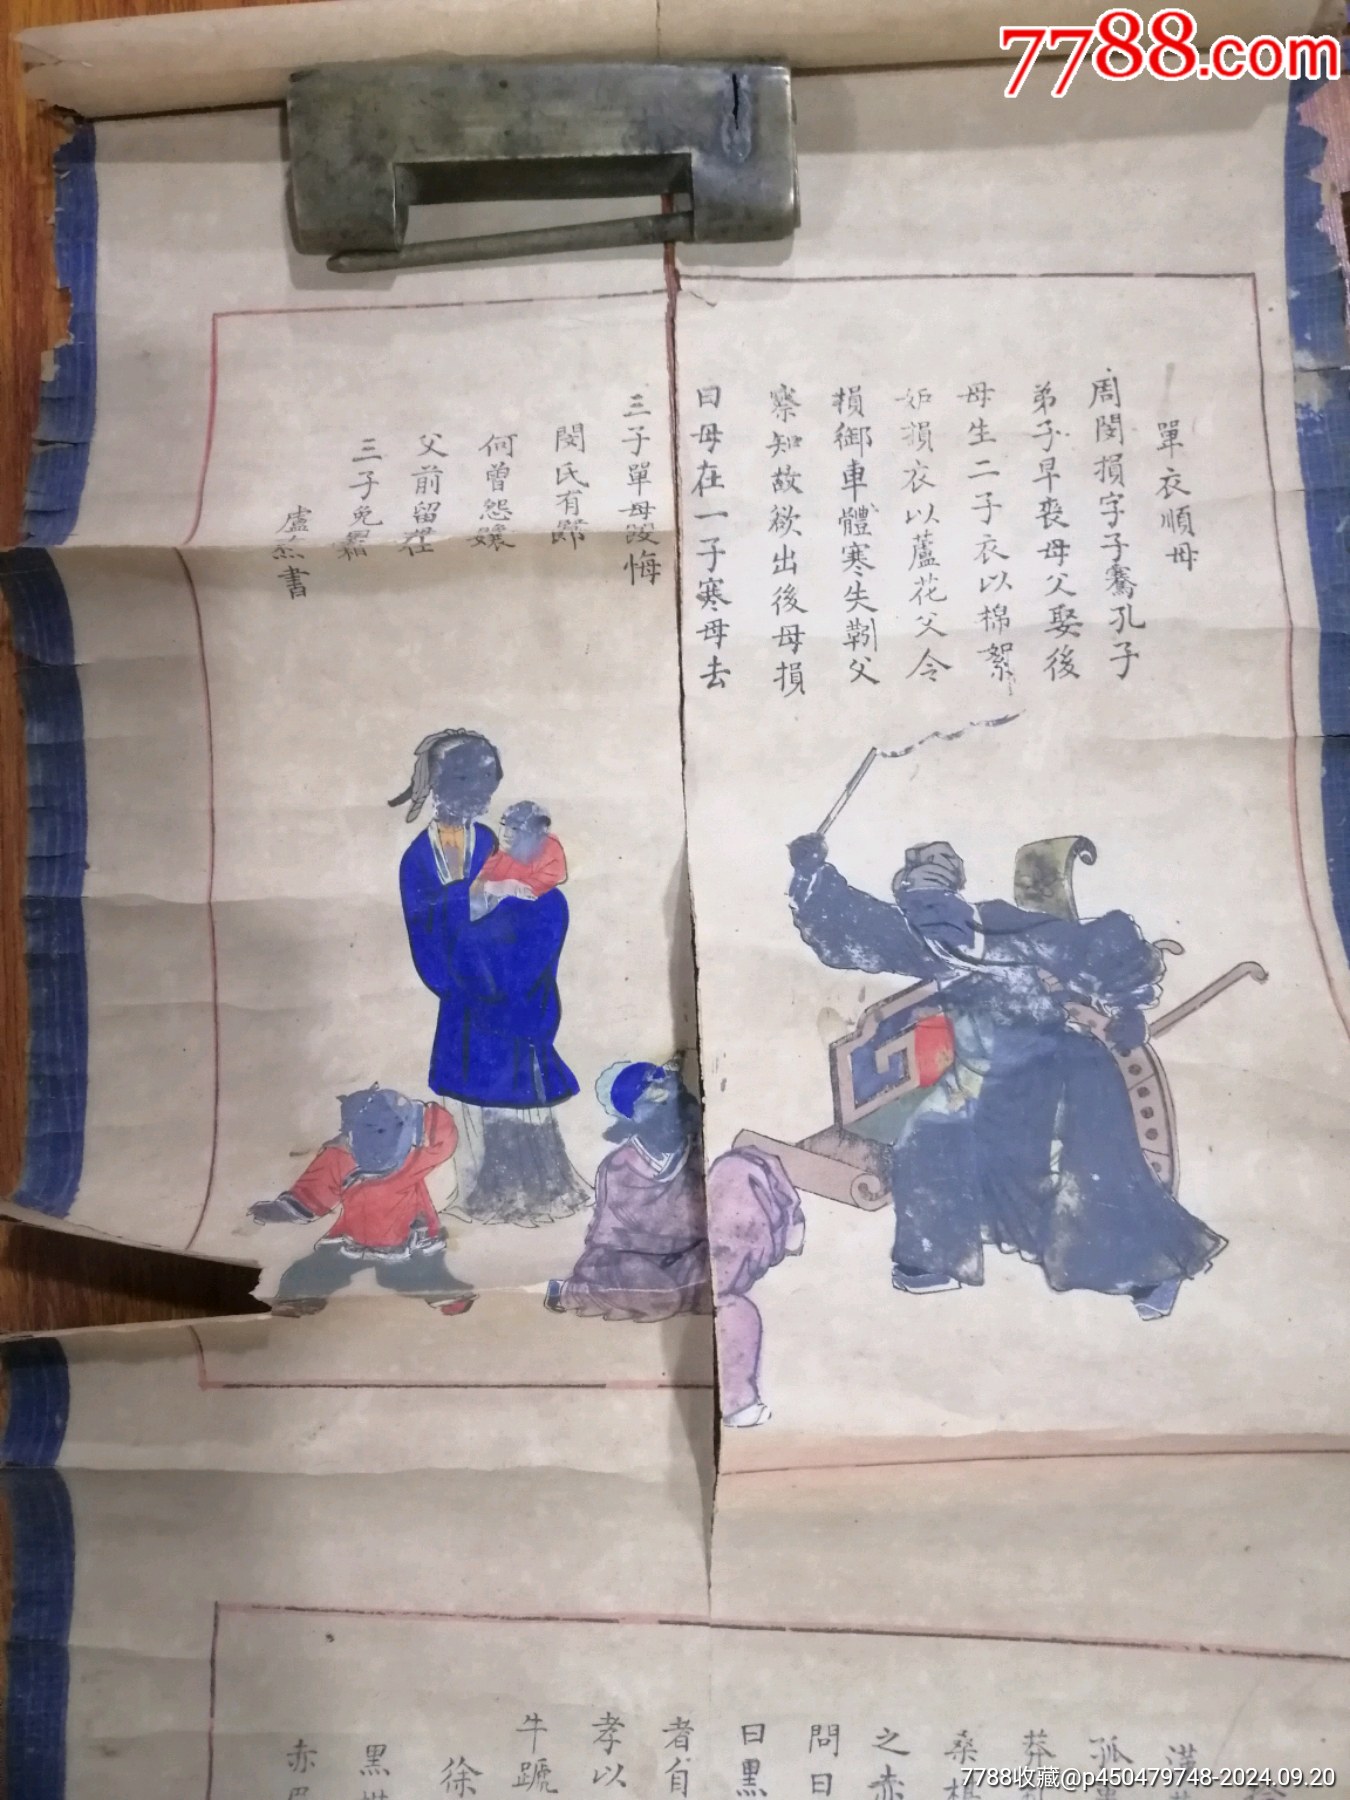 7788.com
單衣順母
周閔損字子騫孔子
弟子早丧母父娶後
母生二子衣以棉絮
妒損衣以蘆花父令
損御車體寒失靷父
察知故欲出後母損
曰母在一子寒母去
三子單母後悔
閔氏有
何曾怨孃
父前留在
三子免霜
盧書
漢
孤
莽
桑椹
之赤
問曰
曰黑
者自
孝以
牛蹏
徐
黑
赤
7788收藏@p450479748-2024.09.20